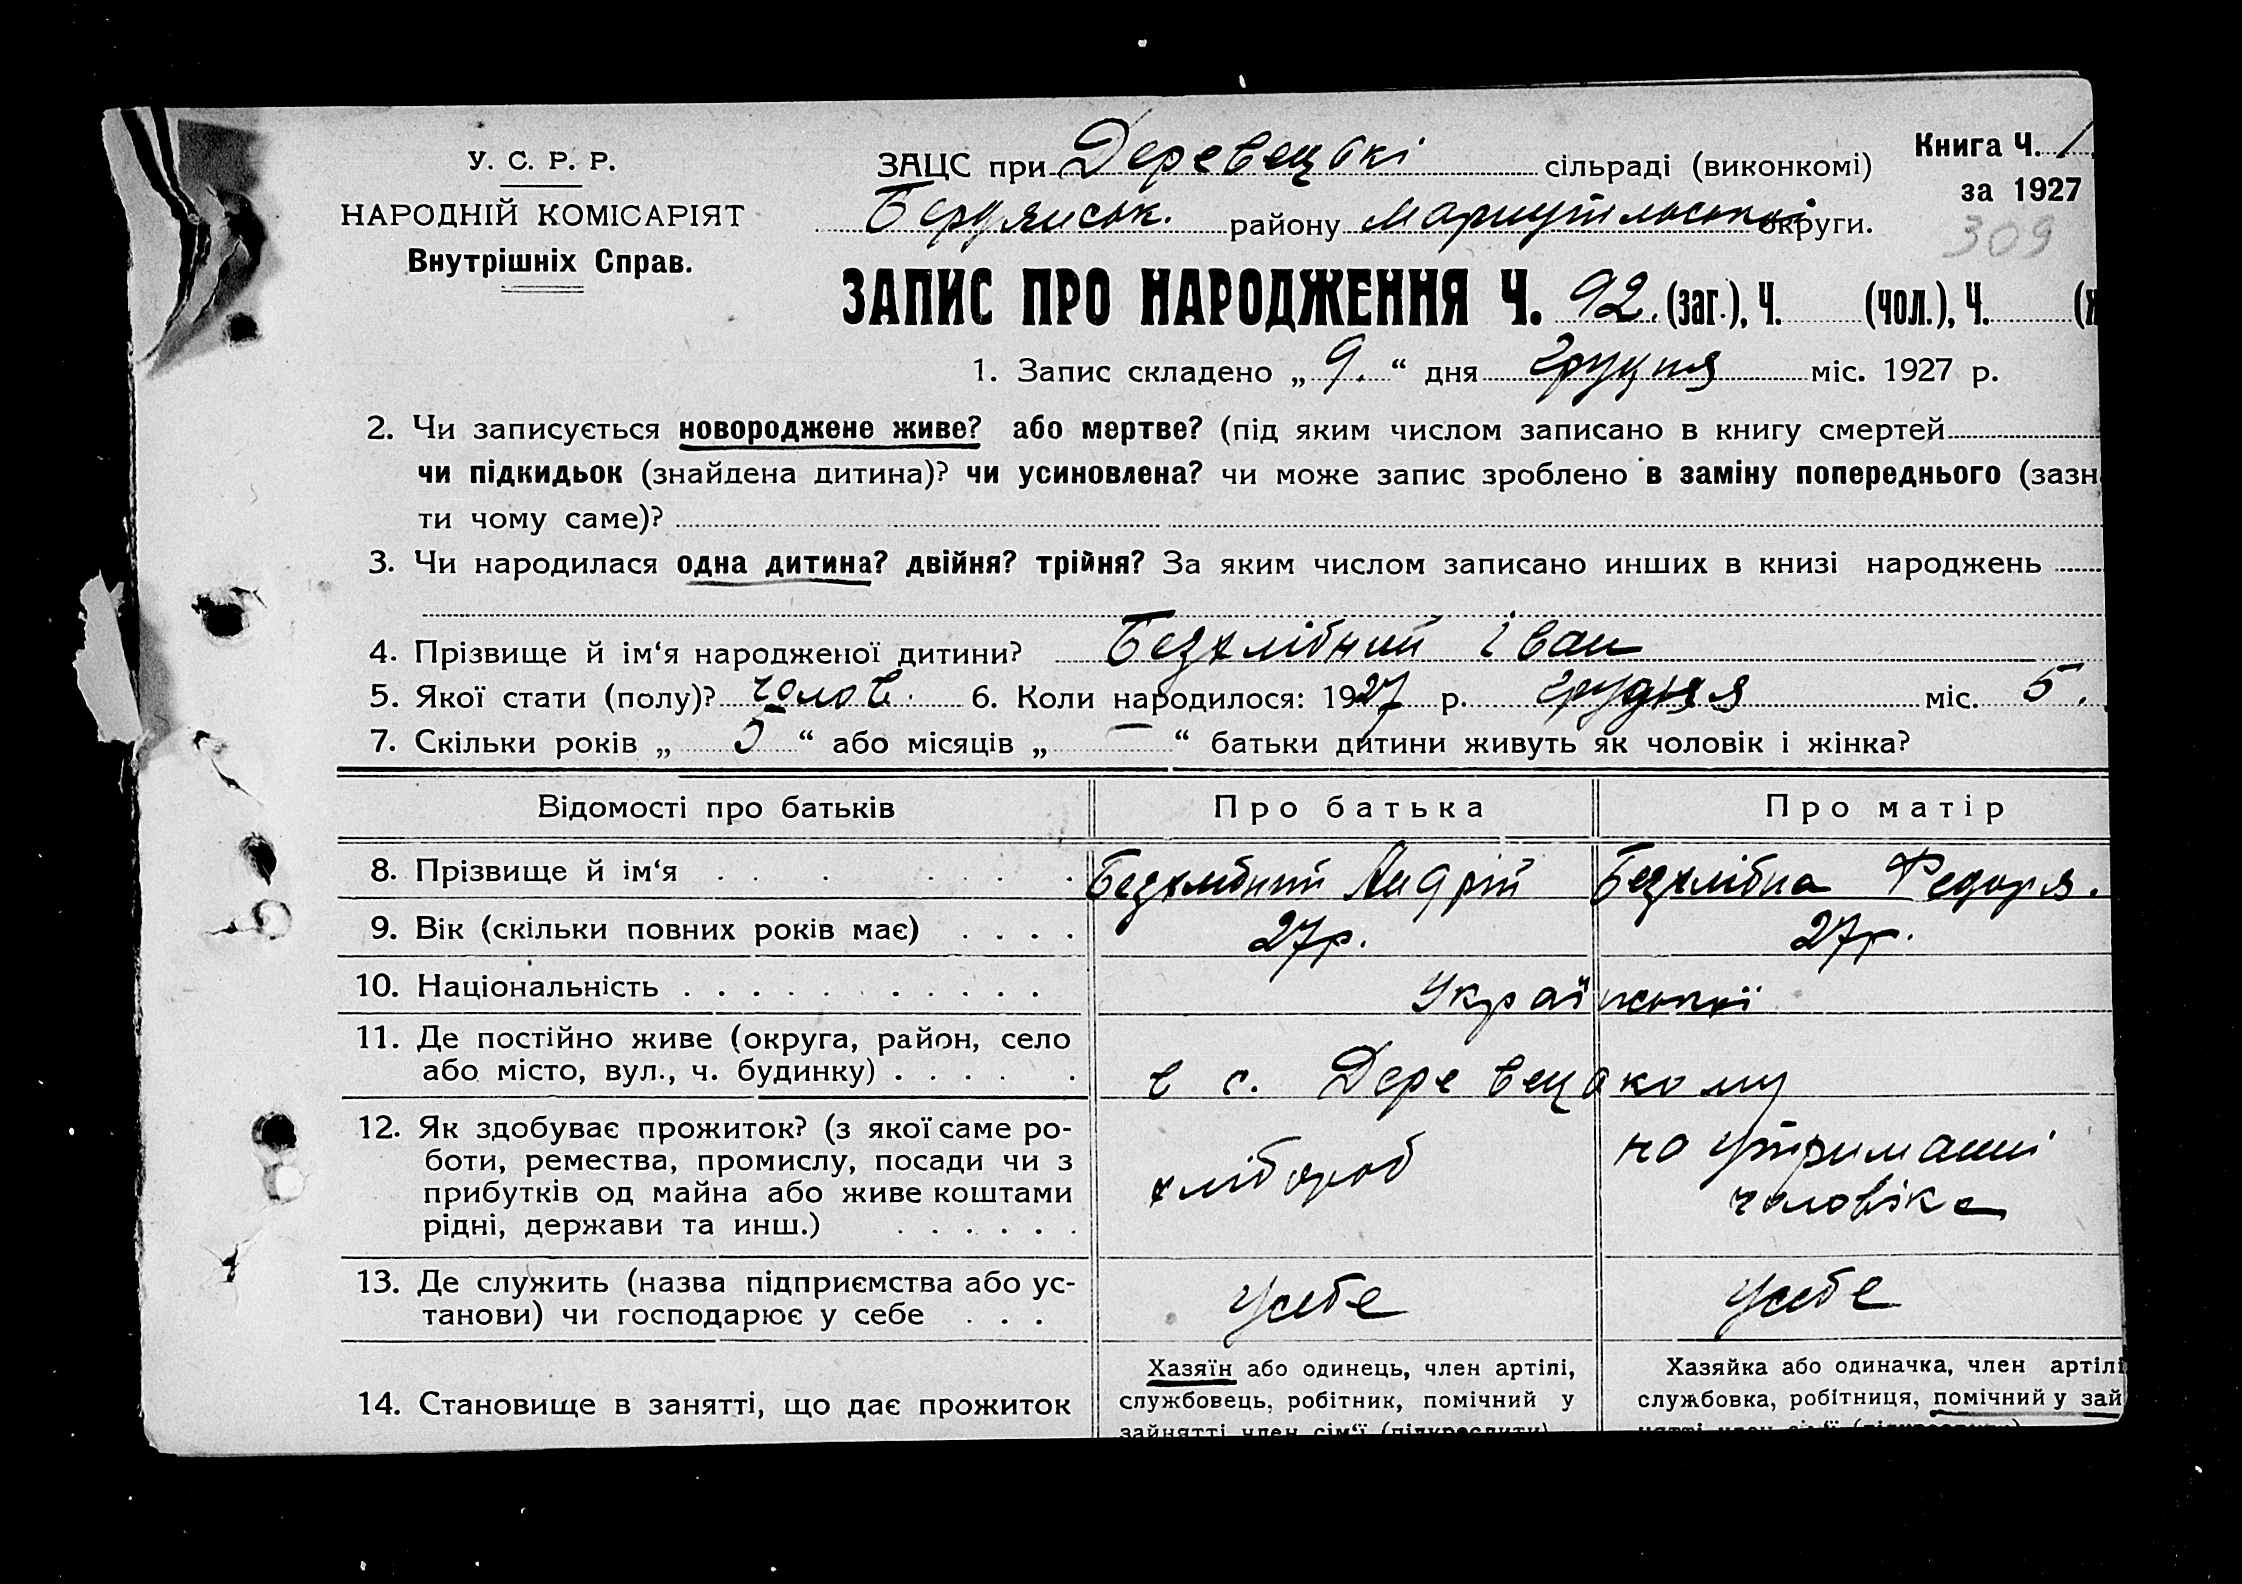 У. С. Р. Р.
НАРОДНІЙ КОМІСАРІЯТ
Внутрішніх Справ.
ЗАЦС при Деревецькі сільраді (виконкомі)
Книга Ч. 1
за 1927
Бердянськ. району Маріупільської округи.
309
ЗАПИС ПРО НАРОДЖЕННЯ Ч. 92. (заг.), Ч. (чол.), Ч.
1. Запис складено „ 9. “ дня грудня міс. 1927 р.
2. Чи записується новороджене живе? або мертве? (під яким числом записано в книгу смертей
чи підкидьок (знайдена дитина)? чи усиновлена? чи може запис зроблено в заміну попереднього (зазн
ти чому саме)?
3. Чи народилася одна дитина? двійня? трійня? За яким числом записано инших в книзі народжень
4. Прізвище й ім‘я народженої дитини? Безхлібний Іван
5. Якої стати (полу)? чолов. 6. Коли народилося: 1927 р. грудня міс. 5.
7. Скільки років „ 5 “ або місяців „ — “ батьки дитини живуть як чоловік і жінка?
Відомості про батьків Про батька Про матір
8. Прізвище й ім‘я Безхлібний Андрій Безхлібна Федора.
9. Вік (скільки повних років має) 27р. 27р.
10. Національність Української
11. Де постійно живе (округа, район, село
або місто, вул., ч. будинку) в с. Деревецькому
12. Як здобуває прожиток? (з якої саме ро-
боти, ремества, промислу, посади чи з
прибутків од майна або живе коштами
рідні, держави та инш.)
хлібороб
на утриманні
чоловіка
13. Де служить (назва підприємства або ус-
танови) чи господарює у себе
усебе усебе
14. Становище в занятті, що дає прожиток
Хазяїн або одинець, член артілі,
службовець, робітник, помічний у
зайнятті член сім‘ї (підкреслити)
Хазяйка або одиначка, член артілі
службовка, робітниця, помічний у зай
нятті член сім‘ї (підкреслити)